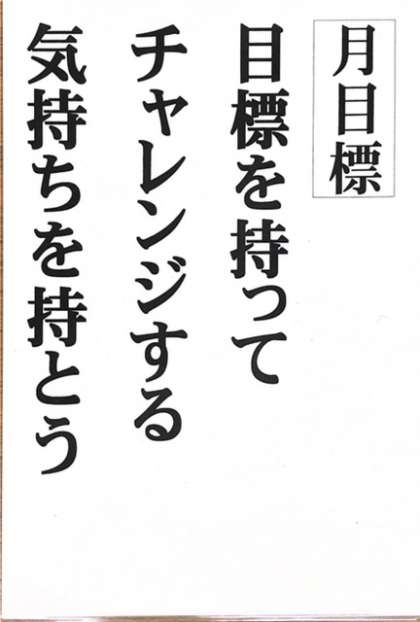 月目標
目標を持って
チャレンジする
気持ちを持とう